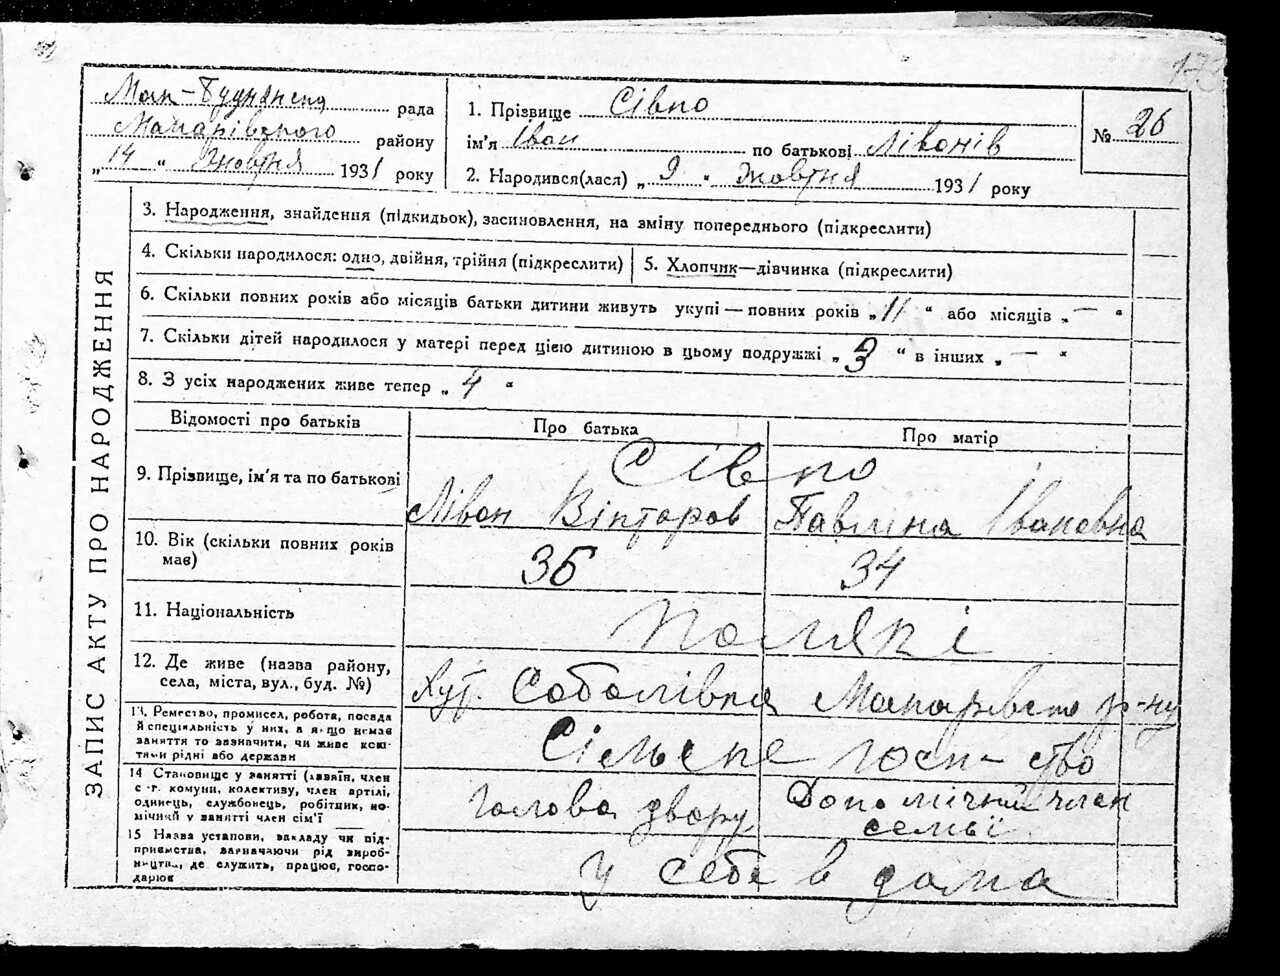 173
Мак-Буднянська рада
Макарівського району
„14 “ Жовтня 1931 року
1. Прізвище Сівко
ім'я Іван по батькові Лівонів
2. Народився(лася) „ 9 “ Жовтня 1931 року
№ 26
3. Народження, знайдення (підкидьок), засиновлення, на зміну попереднього (підкреслити)
4. Скільки народилося: одно, двійня, трійня (підкреслити)
5. Хлопчик—дівчинка (підкреслити)
6. Скільки повних років або місяців батьки дитини живуть укупі — повних років „ 11 “ або місяців „ — “
7. Скільки дітей народилося у матері перед цією дитиною в цьому подружжі „ 3 “ в інших „ — “
8. З усіх народжених живе тепер „ 4 “
ЗАПИС АКТУ ПРО НАРОДЖЕННЯ
Відомості про батьків
Про батька
Про матір
9. Прізвище, ім'я та по батькові
Сівко
Лівон Вікторов
Павліна Івановна
10. Вік (скільки повних років
має)
36
34
11. Національність
Поляки
12. Де живе (назва району,
села, міста, вул., буд. №)
Хут. Соболівка Макарівсько р-ну
13. Ремество, промисел, робота, посада
й спеціяльність у них, а якщо немає
заняття то зазначити, чи живе кош-
тами рідні або держави
Сільске госп-ство
14 Становище у занятті (хазяїн, член
с.-г. комуни, колективу, член артілі,
одинець, службонець, робітник, по-
мічний у занятті член сім'ї
голова двору
Допомічний член
семьї
15 Назва установи, закладу чи під-
приємства, зазначаючи рід вироб-
ництва, де служить, працює, госпо-
дарює
у себе в дома